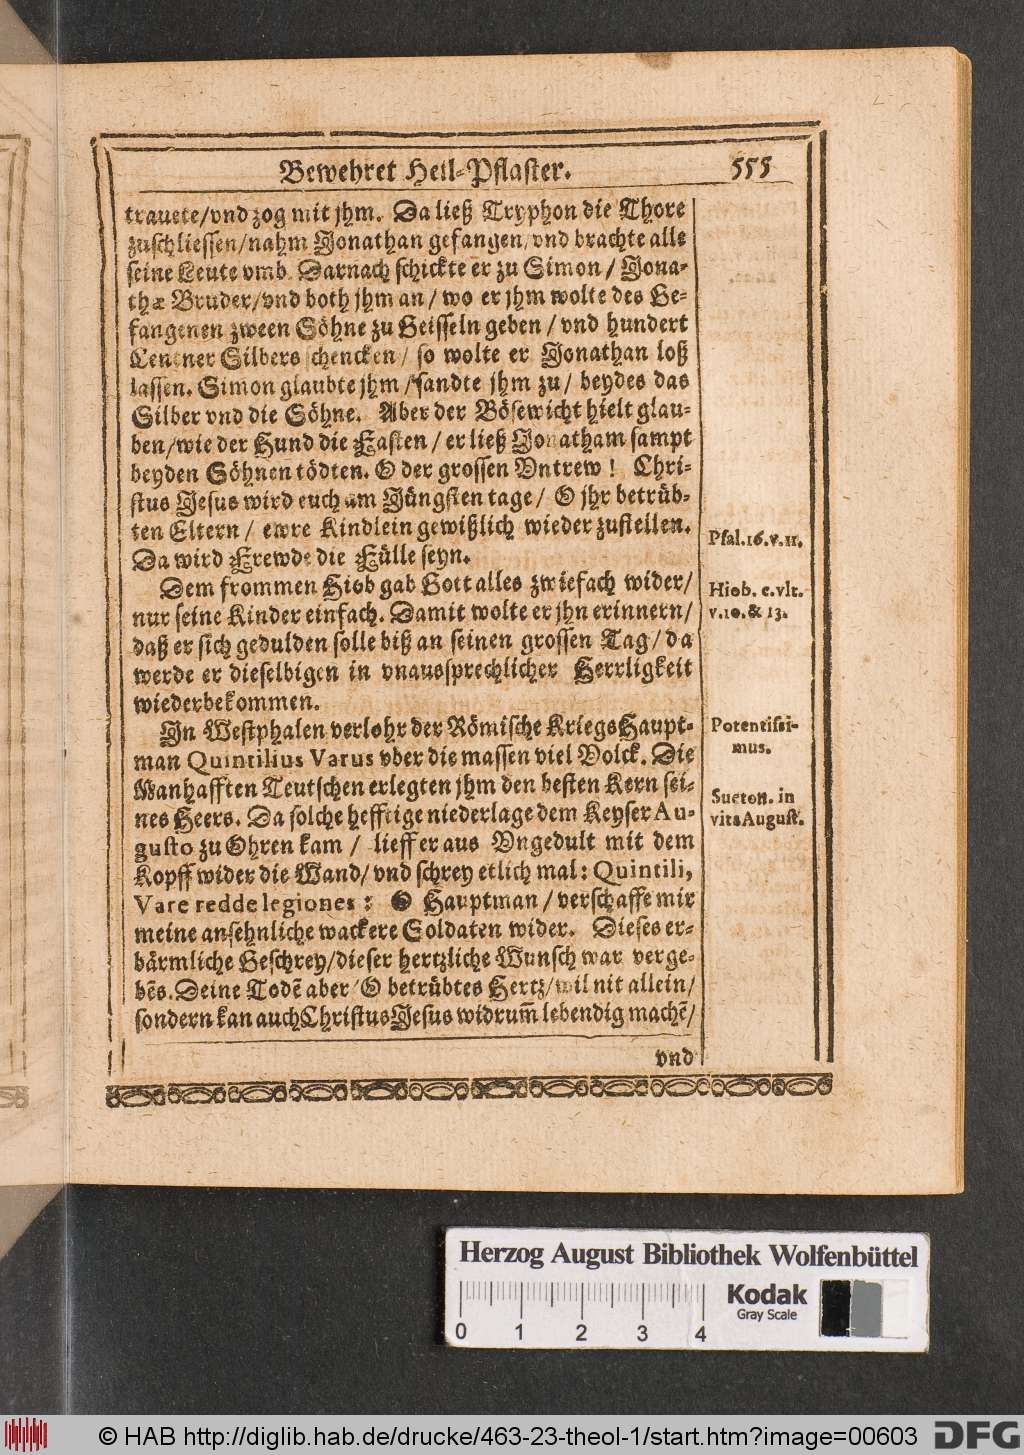 Bewehret Heil-Pflaster. 555
trauete/vnd zog mit jhm. Da ließ Tryphon die Thore
zuschliessen/nahm Jonathan gefangen/vnd brachte alle
seine Leute vmb. Darnach schickte er zu Simon / Jona-
thæ Bruder/vnd both jhm an / wo er jhm wolte des Ge-
fangenen zween Söhne zu Geisseln geben / vnd hundert
Centner Silbers schencken / so wolte er Jonathan loß
lassen. Simon glaubte jhm / sandte jhm zu / beydes das
Silber vnd die Söhne. Aber der Bösewicht hielt glau-
ben/wie der Hund die Fasten / er ließ Jonatham sampt
beyden Söhnen tödten. O der grossen Vntrew ! Chri-
stus Jesus wird euch am Jüngsten tage / O jhr betrüb-
ten Eltern / ewre Kindlein gewißlich wieder zustellen.
Da wird Frewde die Fülle seyn.
Psal.16.v.11.
Dem frommen Hiob gab Gott alles zwiefach wider/
nur seine Kinder einfach. Damit wolte er jhn erinnern/
daß er sich gedulden solle biß an seinen grossen Tag / da
werde er dieselbigen in vnaussprechlicher Herrligkeit
wiederbekommen.
Hiob. c.vlt.
v.10.& 13.
In Westphalen verlohr der Römische KriegsHaupt-
man Quintilius Varus vber die massen viel Volck. Die
Manhafften Teutschen erlegten jhm den besten Kern sei-
nes Heers. Da solche hefftige niederlage dem Keyser Au-
gusto zu Ohren kam / lieff er aus Vngedult mit dem
Kopff wider die Wand/vnd schrey etlich mal: Quintili,
Vare redde legiones : O Hauptman / verschaffe mir
meine ansehnliche wackere Soldaten wider. Dieses er-
bärmliche Geschrey/dieser hertzliche Wunsch war verge-
bẽs. Deine Todẽ aber/O betrübtes Hertz/wil nit allein/
sondern kan auch Christus Jesus widrum̃ lebendig machẽ/
Potentissi-
mus.
Sueton. in
vita August.
vnd
Herzog August Bibliothek Wolfenbüttel
Kodak
Gray Scale
0 1 2 3 4
© HAB http://diglib.hab.de/drucke/463-23-theol-1/start.htm?image=00603
DFG